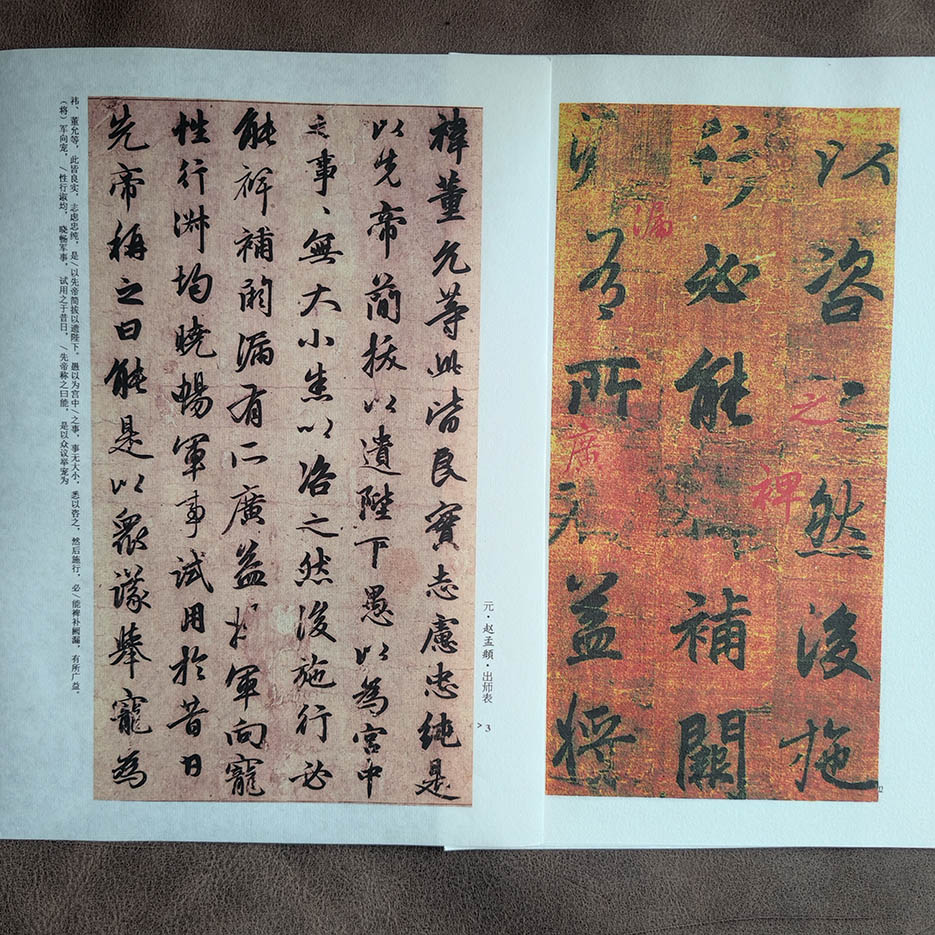 以咨之然後施
行必能裨補闕
漏有所廣益將
元·赵孟頫·出师表
>3
禕董允等此皆良實志慮忠純是
以先帝簡拔以遺陛下愚以為宮中
之事、無大小悉以咨之然後施行必
能裨補闕漏有所廣益將軍向寵
性行淑均曉暢軍事試用於昔日
先帝稱之曰能是以眾議舉寵為
祎、董允等，此皆良实，志虑忠纯，是/以先帝简拔以遗陛下。愚以为宫中/之事，事无大小，悉以咨之，然后施行，必/能裨补阙漏，有所广益。
（将）军向宠，/性行淑均，晓畅军事，试用之于昔日，/先帝称之曰能，是以众议举宠为